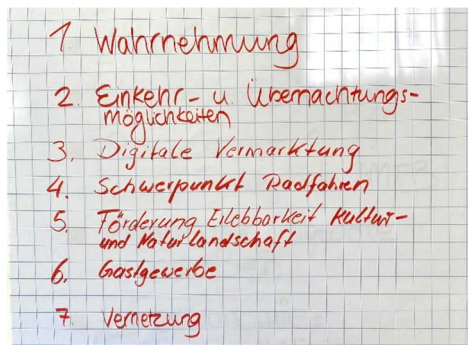 1 Wahrnehmung
2. Einkehr- u. Übernachtungs-
möglichkeiten
3. Digitale Vermarktung
4. Schwerpunkt Radfahren
5. Förderung Erlebbarkeit Kultur-
und Naturlandschaft
6. Gastgewerbe
7. Vernetzung